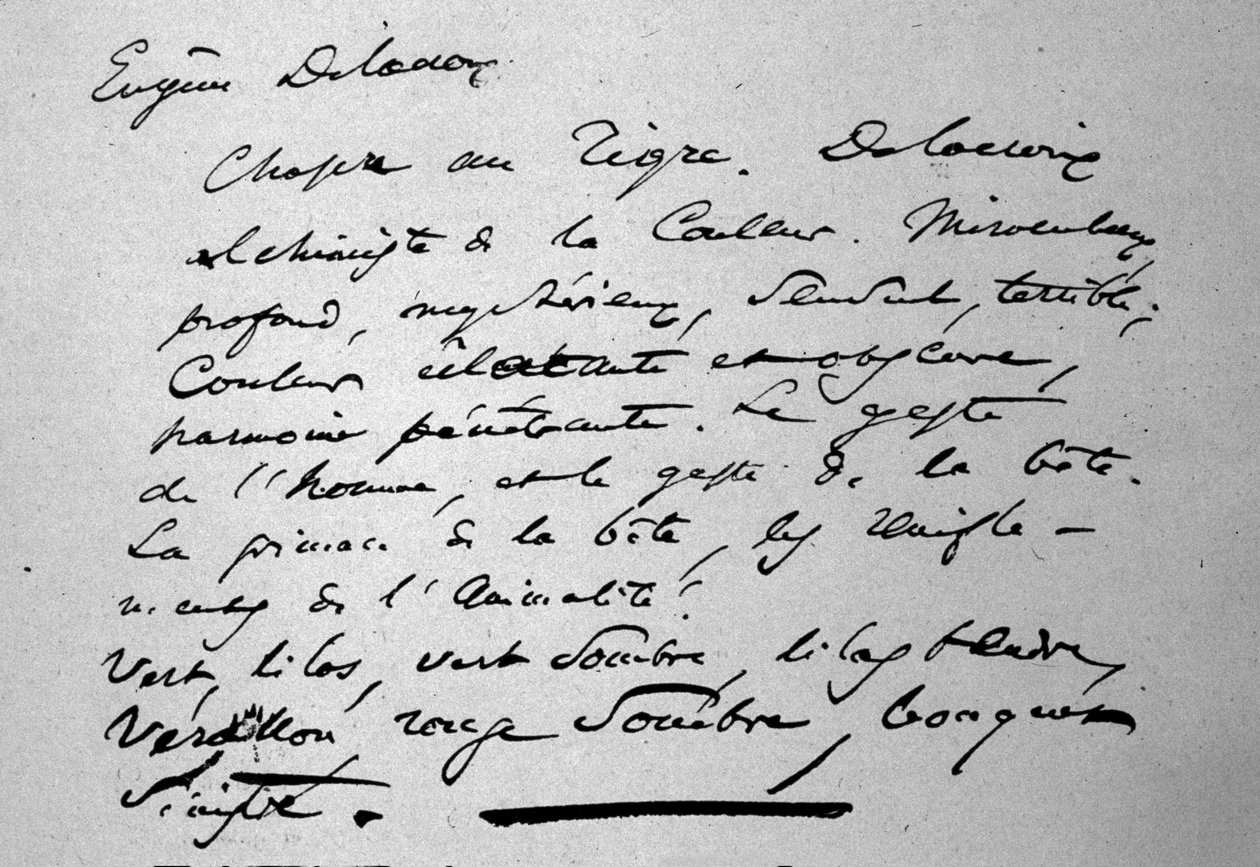 Eugène Delacroix
Chasse au Tigre. Delacroix
alchimiste de la Couleur. Miraculeux,
profond, mystérieux, sensuel, terrible;
Couleur éclatante et obscure,
harmonie pénétrante. Le geste
de l'homme, et le geste de la bête.
La grimace de la bête, les reniflе-
ments de l'Animalité!
Vert, lilas, vert sombre, lilas tendre,
vermillon, rouge sombre, bouquet
sinistre.